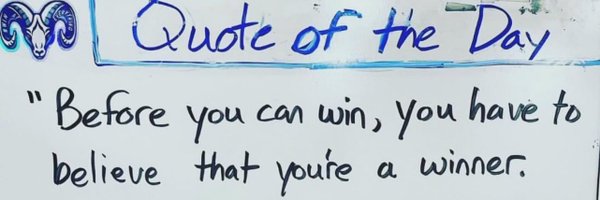 Quote of the Day
"Before you can win, you have to
believe that you're a winner.